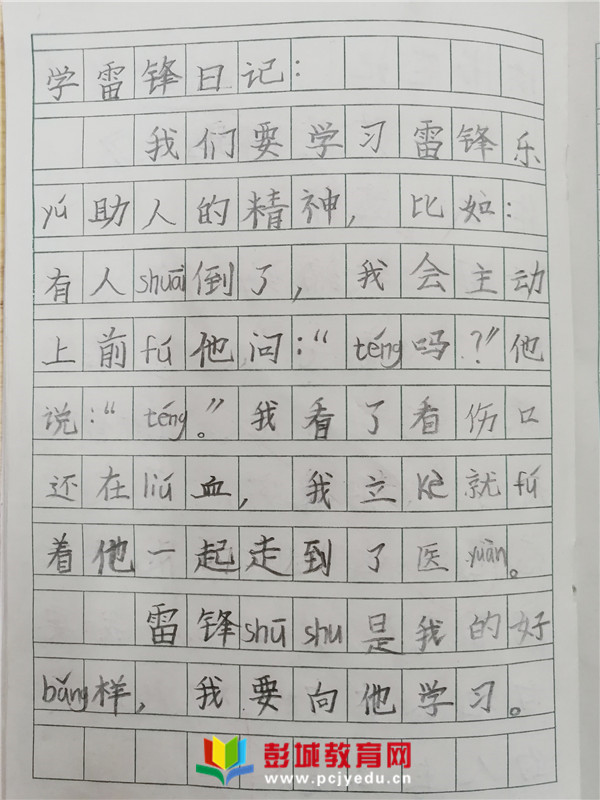 学雷锋日记：
我们要学习雷锋乐
yú助人的精神，比如：
有人shuāi倒了，我会主动
上前fú他问：“téng吗？”他
说：“téng。”我看了看伤口
还在liú血，我立kè就fú
着他一起走到了医yuàn。
雷锋shū shu是我的好
bǎng样，我要向他学习。
彭城教育网
www.pcjyedu.cn